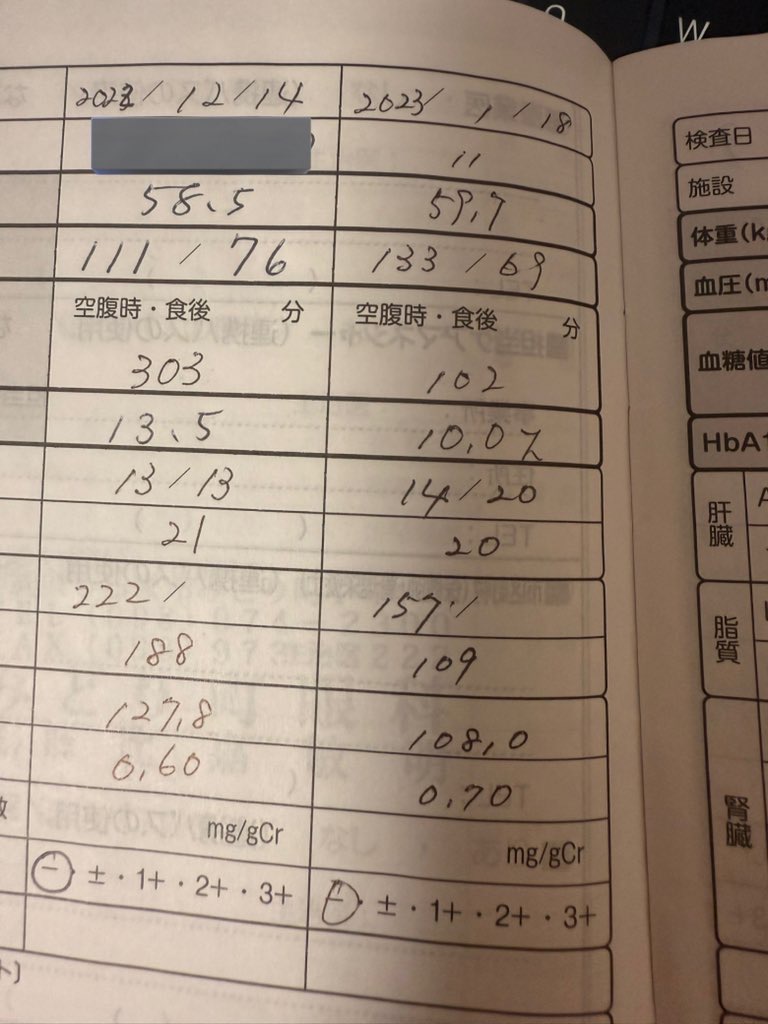 2023/12/14 2023/1/18
〃
58.5 59.7
111/76 133/69
空腹時・食後 分 空腹時・食後 分
303 102
13.5 10.0%
13/13 14/20
21 20
222/ 157/
188 109
127.8 108.0
0.60 0.70
mg/gCr mg/gCr
－・±・1+・2+・3+ －・±・1+・2+・3+
検査日
施設
体重(k
血圧(m
血糖値
HbA1
肝臓
脂質
腎臓